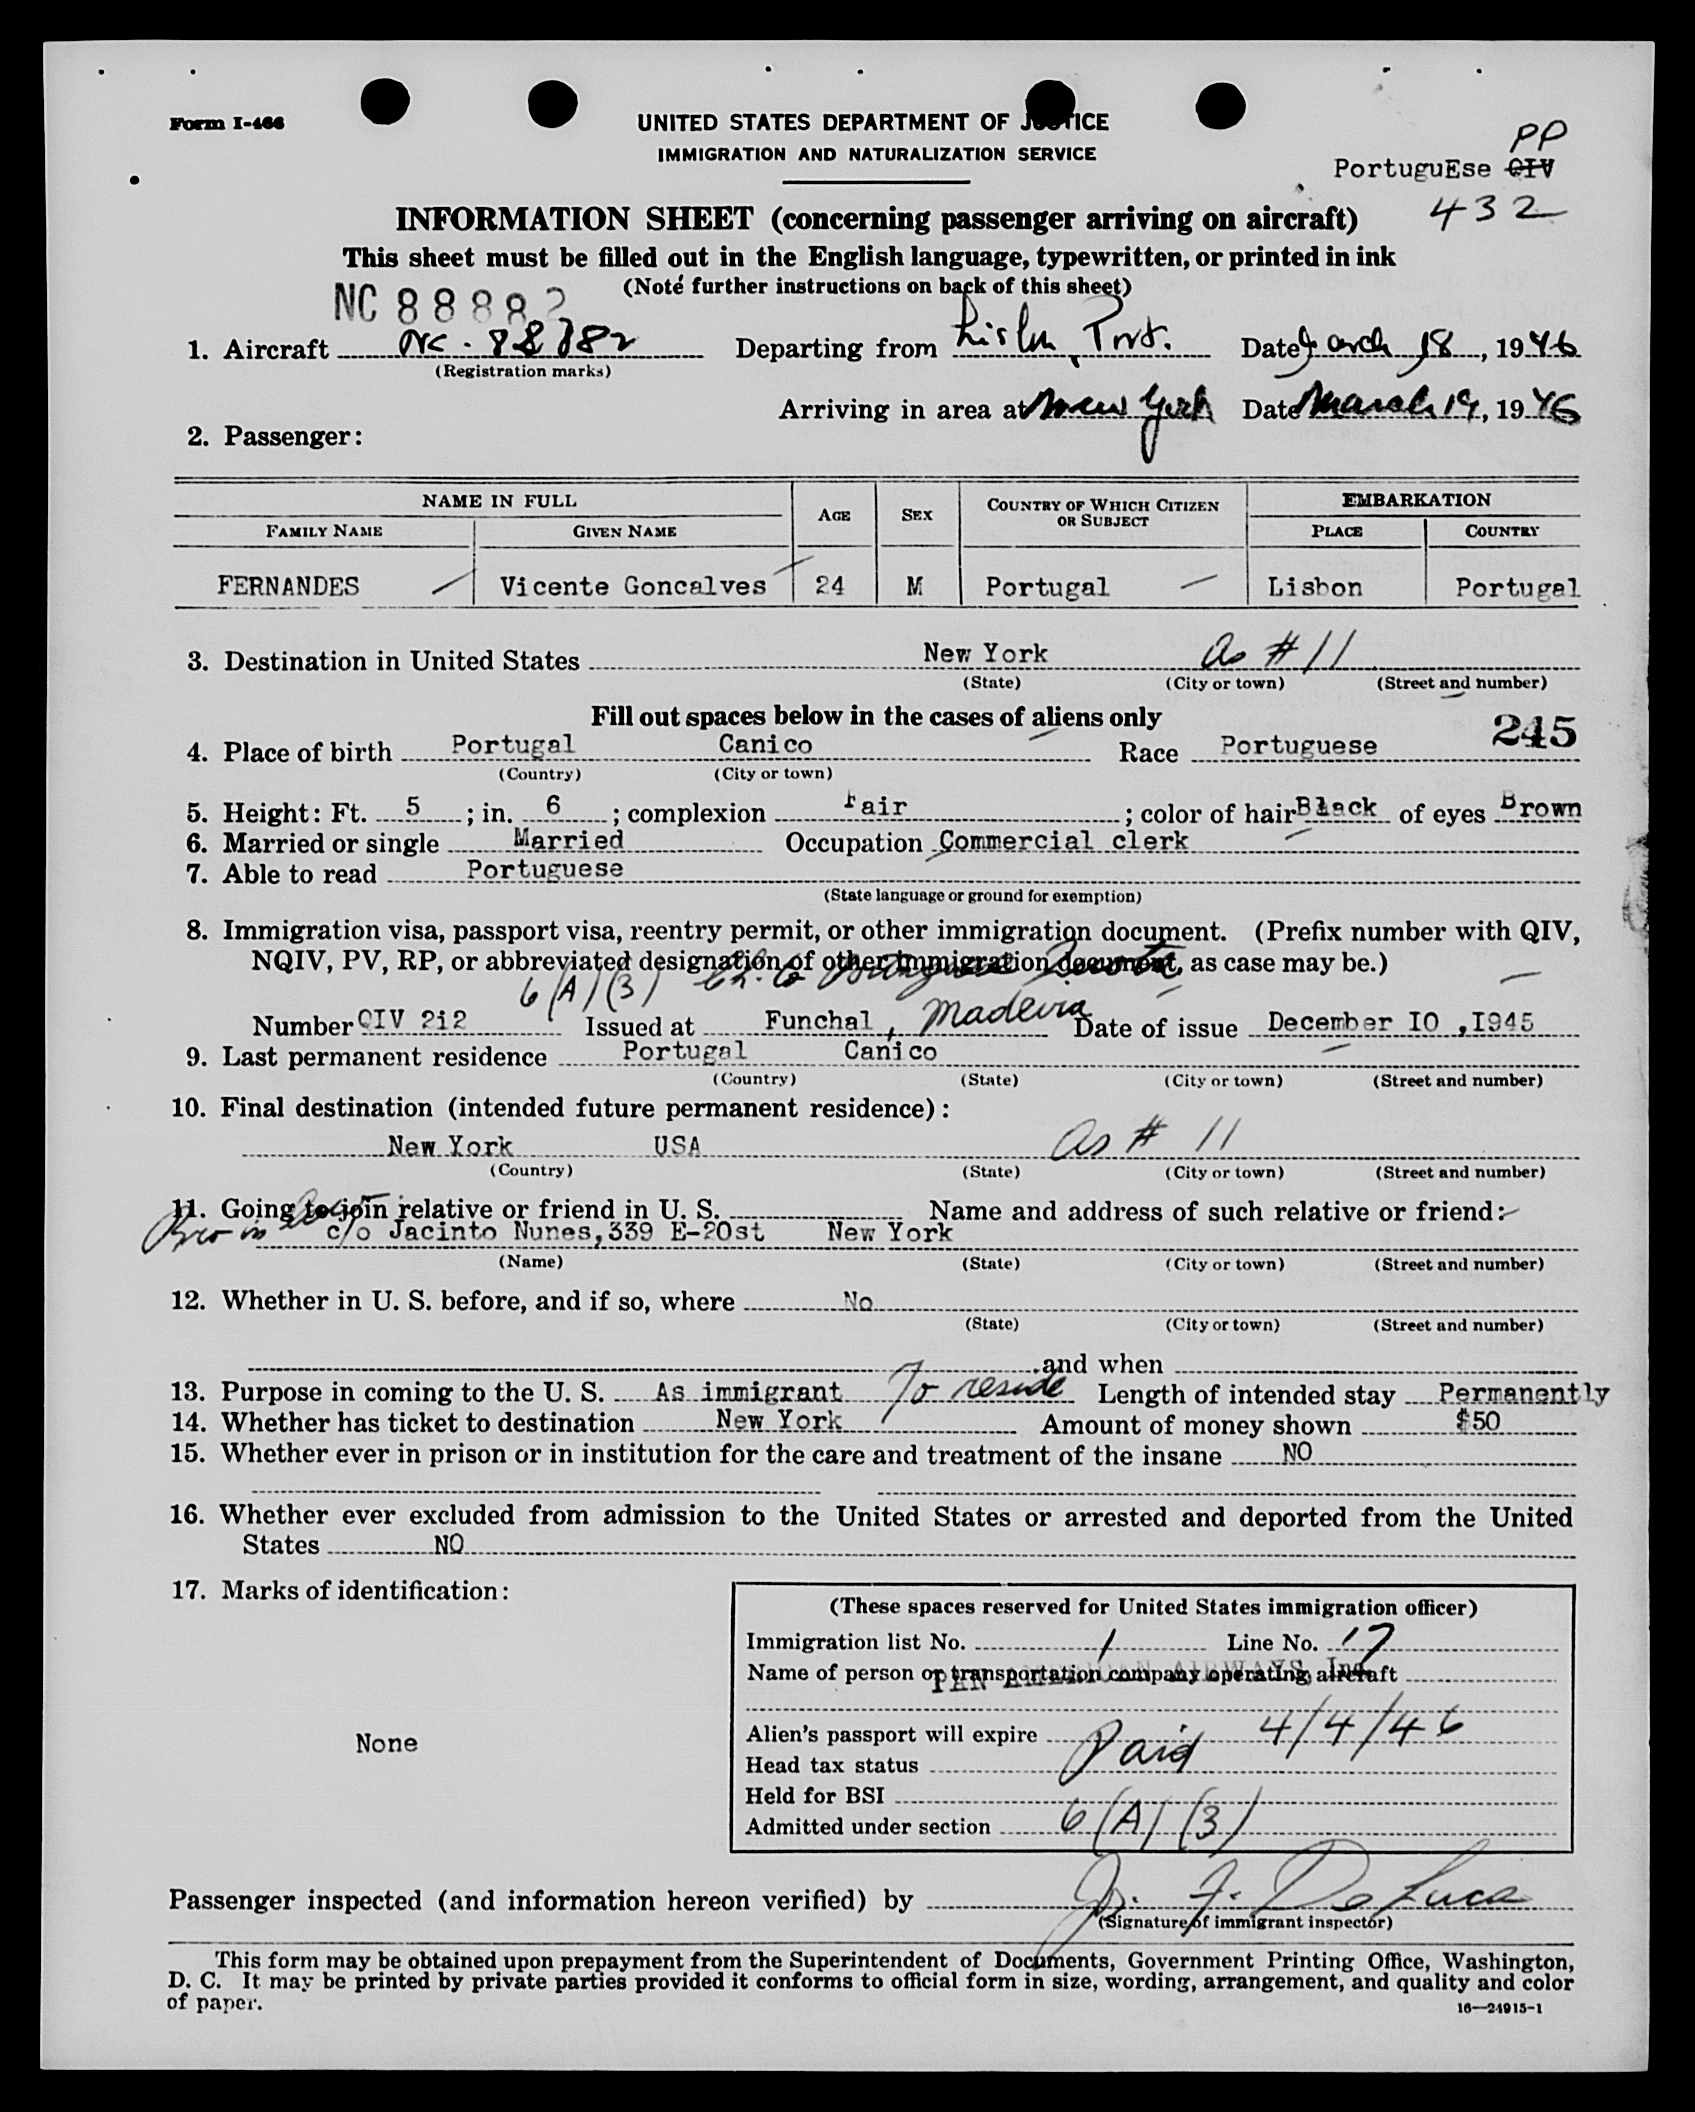 Form I-466
UNITED STATES DEPARTMENT OF JUSTICE
IMMIGRATION AND NATURALIZATION SERVICE
PP
PortuguEse QIV
432
INFORMATION SHEET (concerning passenger arriving on aircraft)
This sheet must be filled out in the English language, typewritten, or printed in ink
(Note further instructions on back of this sheet)
NC 88882
1. Aircraft NC - 88882 Departing from Lisbon, Port. Date March 18, 1946
(Registration marks)
Arriving in area at New York Date March 19, 1946
2. Passenger:
NAME IN FULL
FAMILY NAME GIVEN NAME AGE SEX COUNTRY OF WHICH CITIZEN OR SUBJECT EMBARKATION PLACE COUNTRY
FERNANDES Vicente Goncalves 24 M Portugal Lisbon Portugal
3. Destination in United States New York As # 11
(State) (City or town) (Street and number)
Fill out spaces below in the cases of aliens only
245
4. Place of birth Portugal Canico Race Portuguese
(Country) (City or town)
5. Height: Ft. 5; in. 6; complexion Fair; color of hair Black of eyes Brown
6. Married or single Married Occupation Commercial clerk
7. Able to read Portuguese
(State language or ground for exemption)
8. Immigration visa, passport visa, reentry permit, or other immigration document. (Prefix number with QIV,
NQIV, PV, RP, or abbreviated designation of other immigration document, as case may be.)
6(A)(3) Ch. to Portuguese Quota
Number QIV 212 Issued at Funchal, Madeira Date of issue December IO ,I945
9. Last permanent residence Portugal Canico
(Country) (State) (City or town) (Street and number)
10. Final destination (intended future permanent residence):
New York USA As # 11
(Country) (State) (City or town) (Street and number)
11. Going to join relative or friend in U. S. Name and address of such relative or friend:
Bro in c/o Jacinto Nunes,339 E-20st New York
(Name) (State) (City or town) (Street and number)
12. Whether in U. S. before, and if so, where No
(State) (City or town) (Street and number)
and when
13. Purpose in coming to the U. S. As immigrant To reside Length of intended stay Permanently
14. Whether has ticket to destination New York Amount of money shown $50
15. Whether ever in prison or in institution for the care and treatment of the insane NO
16. Whether ever excluded from admission to the United States or arrested and deported from the United
States NO
17. Marks of identification:
None
(These spaces reserved for United States immigration officer)
Immigration list No. 1 Line No. 17
Name of person or transportation company operating aircraft
PAN AMERICAN AIRWAYS, Inc.
Alien's passport will expire 4/4/46
Head tax status Paid
Held for BSI
Admitted under section 6(A)(3)
Passenger inspected (and information hereon verified) by J. F. De Luca
(Signature of immigrant inspector)
This form may be obtained upon prepayment from the Superintendent of Documents, Government Printing Office, Washington,
D. C. It may be printed by private parties provided it conforms to official form in size, wording, arrangement, and quality and color
of paper.
16—24915-1